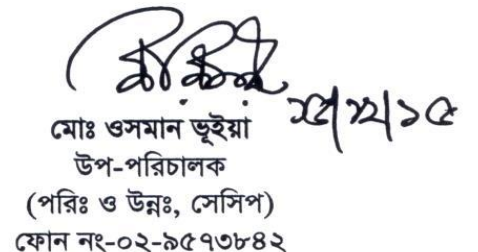 মোঃ ওসমান ভূইয়া
উপ-পরিচালক
(পরিঃ ও উন্নঃ, সেসিপ)
ফোন নং-০২-৯৫৭৩৮৪২